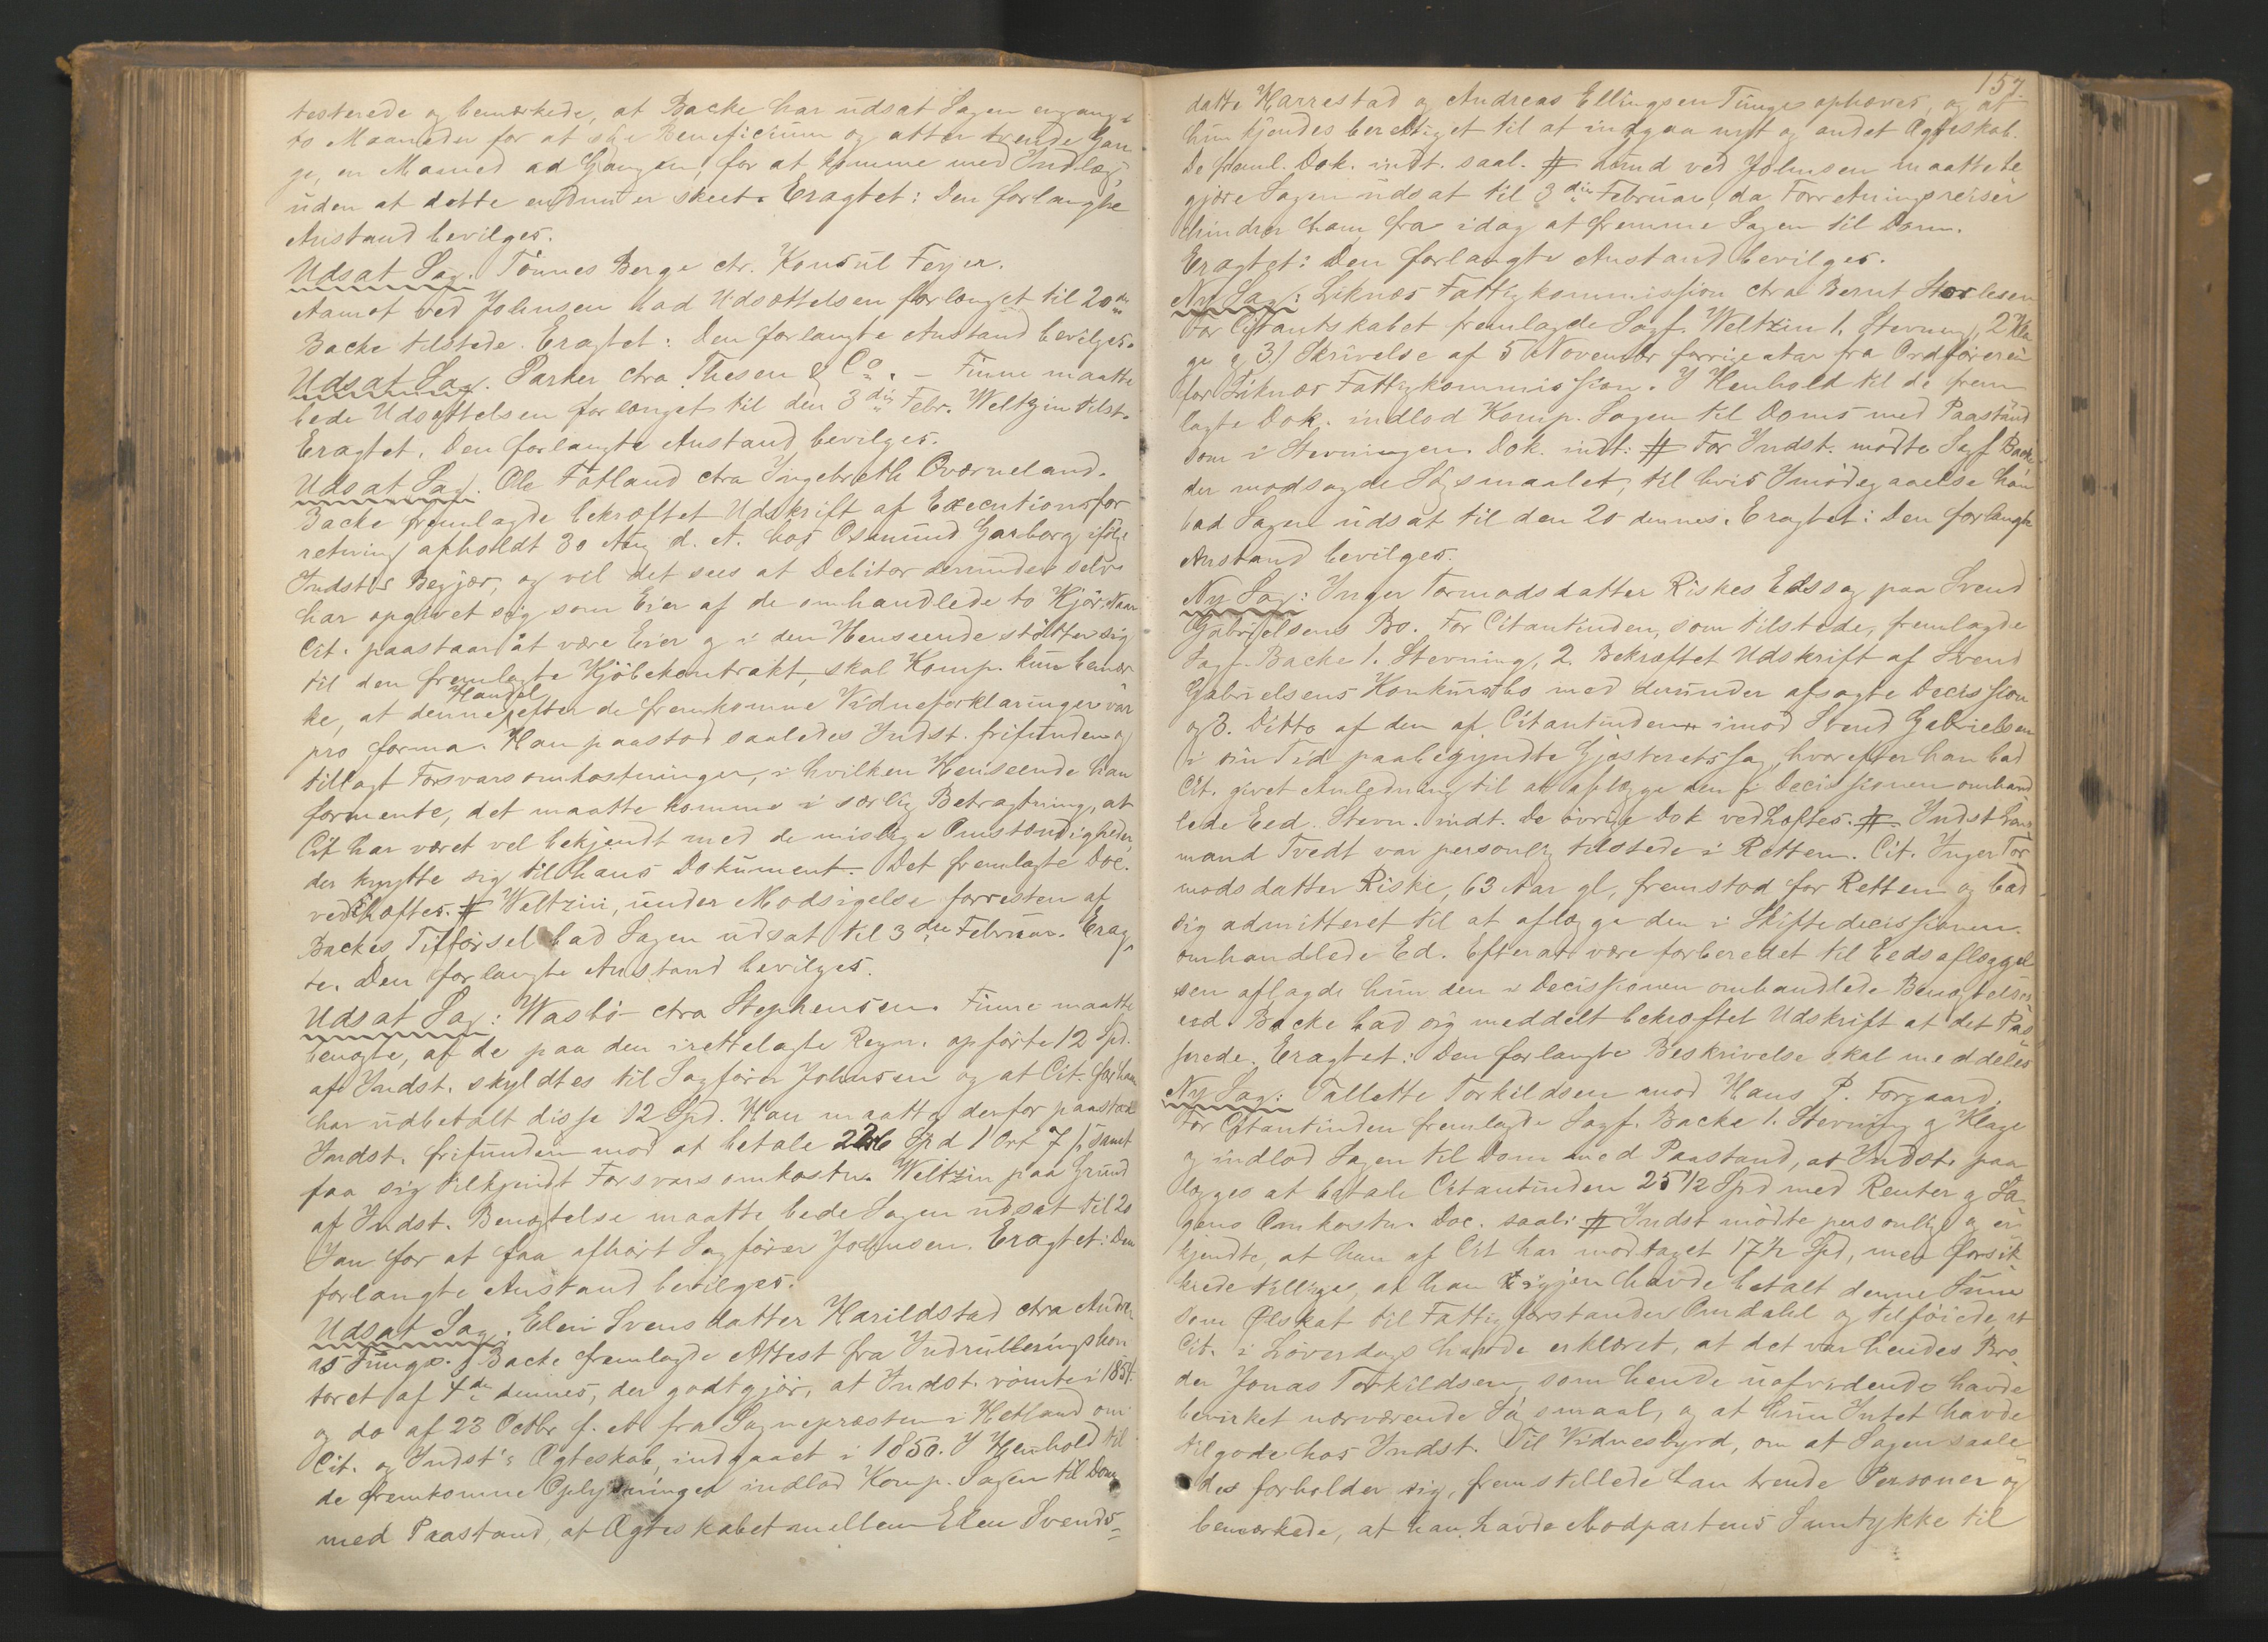 testerede og bemærkede, at Backe har udsat Sagen engang i
to Maaneder for at søge Beneficium og atter trende Gan
ge, en Maaned ad Gangen, for at komme med Indlæg,
uden at dette endnu er skeet. Eragtet: Den forlangte
Anstand bevilges.
Udsat Sag. Tönnes Berge ctr. Konsul Feyer.
Aamot ved Johnsen bad Udsættelsen forlænget til 20de
Backe tilstede. Eragtet: Den forlangte Anstand bevilges.
Udsat Sag. Parker ctra Thesen & Co. – Finne maatte
bede Udsættelsen forlænget til den 3die Febr. Weltzin tilst.
Eragtet. Den forlangte Anstand bevilges.
Udsat Sag. Ole Fotland ctra Ingebreth Qværneland.
Backe fremlagde bekræftet Udskrift af Executionsfor
retning afholdt 30 Aug d. A. hos Osmund Garborg ifølge
Indst's Begjær, og vil det sees at Debitor derunder selv
har opgivet sig som Eier af de omhandlede to Kjör. Naar
Cit. paastaar at være Eier og i den Henseende stötter sig
til den fremlagte Kjöbekontrakt, skal Komp. kun bemær
ke, at denne Handel efter de fremkomne Vidneforklaringer var
pro forma. Han paastod saaledes Indst. frifunden og
tillagt Forsvarsomkostninger, i hvilken Henseende han
formente, det maatte komme i særlig Betragtning, at
Cit har været vel bekjendt med de mislige Omstændigheder,
der knytte sig til hans Dokument. Det fremlagte Doc.
vedhæftes. # Weltzin, under Modsigelse forresten af
Backes Tilförsel bad Sagen udsat til 3die Februar. Erag-
te. Den forlangte Anstand bevilges.
Udsat Sag: Wasbö ctra Stephensen. Finne maatte
benægte, at de paa den irettelagte Regn. opförte 12 Spd.
af Indst. skyldtes til Sagförer Johnsen og at Cit. for ham
har udbetalt disse 12 Spd. Han maatte derfor paastaa
Indst. frifunden mod at betale Spd 1 Ort 7 ß samt
faa sig tilkjendt Forsvarsomkostn. Weltzin paa Grund
af Indst. Benægtelse maatte bede Sagen udsat til 20
Jan for at faa afhört Sagförer Johnsen. Eragtet: Den
forlangte Anstand bevilges.
Udsat Sag. Elen Svensdatter Harildstad ctra Andre
as Tunge. Backe fremlagde Attest fra Indrulleringskon
toret af 4de dennes, der godtgjör, at Indst. römte i 1854.
og do af 23 Octbr f. A fra Sognepræsten i Hetland om
Cit. og Indst's Ægteskab, indgaaet i 1850. I Henhold til
de fremkomne Oplysninger indlod Komp. Sagen til Dom
med Paastand, at Ægteskabet mellem Elen Svends-
157.
datte Harrestad og Andreas Ellingsen Tunge ophæves, og at
hun kjendes berettiget til at indgaa nyt og andet Ægteskab.
De freml. Dok. indt. saal. # ved Johnsen maatte be
gjære Sagen udsat til 3die Februar, da Forretningsreiser
hindrer ham fra idag at fremme Sagen til Dom.
Eragtet: Den forlangte Anstand bevilges.
Ny Sag: Liknes Fattigkommission ctra Bernt
For Citantskabet fremlagde Sagf. Weltzin 1. Stevning, 2 Kla
ge og 3.) Skrivelse af 5 November forrige Aar fra Ordföreren
for Liknes Fattigkommission. I Henhold til de frem
lagte Dok. indlod Komp. Sagen til Doms med Paastand
som i Stevningen. Dok. indt: # For Indst. mödte Sagf Backe
der modsagde Sögsmaalet, til hvis Imödegaaelse han
bad Sagen udsat til den 20 dennes. Eragtet: Den forlangte
Anstand bevilges.
Ny Sag: Inger Tormodsdatter Riskes Edssag paa Svend
Gabrielsens Bo. For Citantinden, som tilstede, fremlagde
Sagf. Backe 1. Stevning, 2. Bekræftet Udskrift af Svend
Gabrielsens Konkursbo med derunder afsagte Decission
og 3. Ditto af den af Citantinden imod Svend Gabrielsen
i sin Tid paabegyndte Gjæsteretssag, hvorefter han bad
Cit. givet Anledning til at aflægge den i Decissionen omhand
lede Eed. Stevn. indt. De övrige Dok vedhæftes. # Indst Lens
mand Tvedt var personlig tilstede i Retten. Cit. Inger Tor
modsdatter Riske, 63 Aar gl, fremstod for Retten og bad
sig admitteret til at aflægge den i Skiftedecissionen
omhandlede Ed. Efterat være forberedet til Eedsaflæggel
sen aflagde hun den i Decissionen omhandlede Benægtelses
eed. Backe bad sig meddelt bekræftet Udskrift af det Pas
serede. Eragtet: Den forlangte Beskrivelse skal meddeles
Ny Sag: Tallette Torkildsen mod Hans P. Forgaard.
For Citantinden fremlagde Sagf. Backe 1. Stevning og Klage
og indlod Sagen til Dom med Paastand, at Indst. paa
lægges at betale Citantinden 25 1/2 Spd med Renter og Sa
gens Omkostn. Doc. saal: # Indst mödte personlig og er
kjendte, at han af Cit har modtaget 17 1/2 Spd, men forsik
krede tillige, at han havde betalt denne Sum
som Ølskat til Fattigforstander Omdahl og tilföiede, at
Cit. i Löverdags havde erklæret, at det var hendes Bro
der Jonas Torkildsen, som hende uafvidende havde
bevirket nærværende Sögsmaal, og at hun Intet havde
tilgode hos Indst. Til Vidnesbyrd, om at Sagen saale
des forholder sig, fremstillede han trende Personer og
bemærkede, at han havde Modpartens Samtykke til